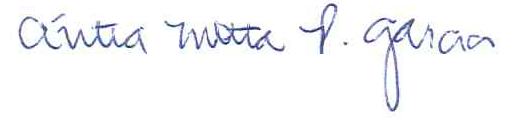 Cíntia Motta P. Garcia